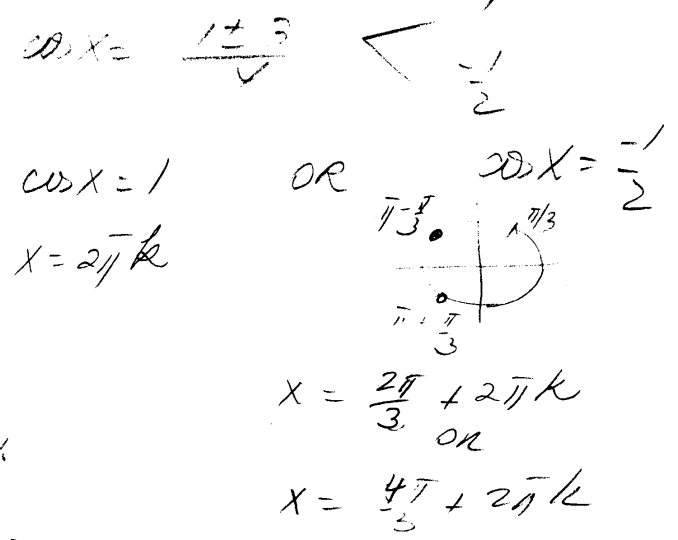 cos x = (1 ± 3)/
-1/2
cos x = 1 OR cos x = -1/2
x = 2πk
π - π/3 π/3
π + π/3
x = 2π/3 + 2πk
OR
x = 4π/3 + 2πk